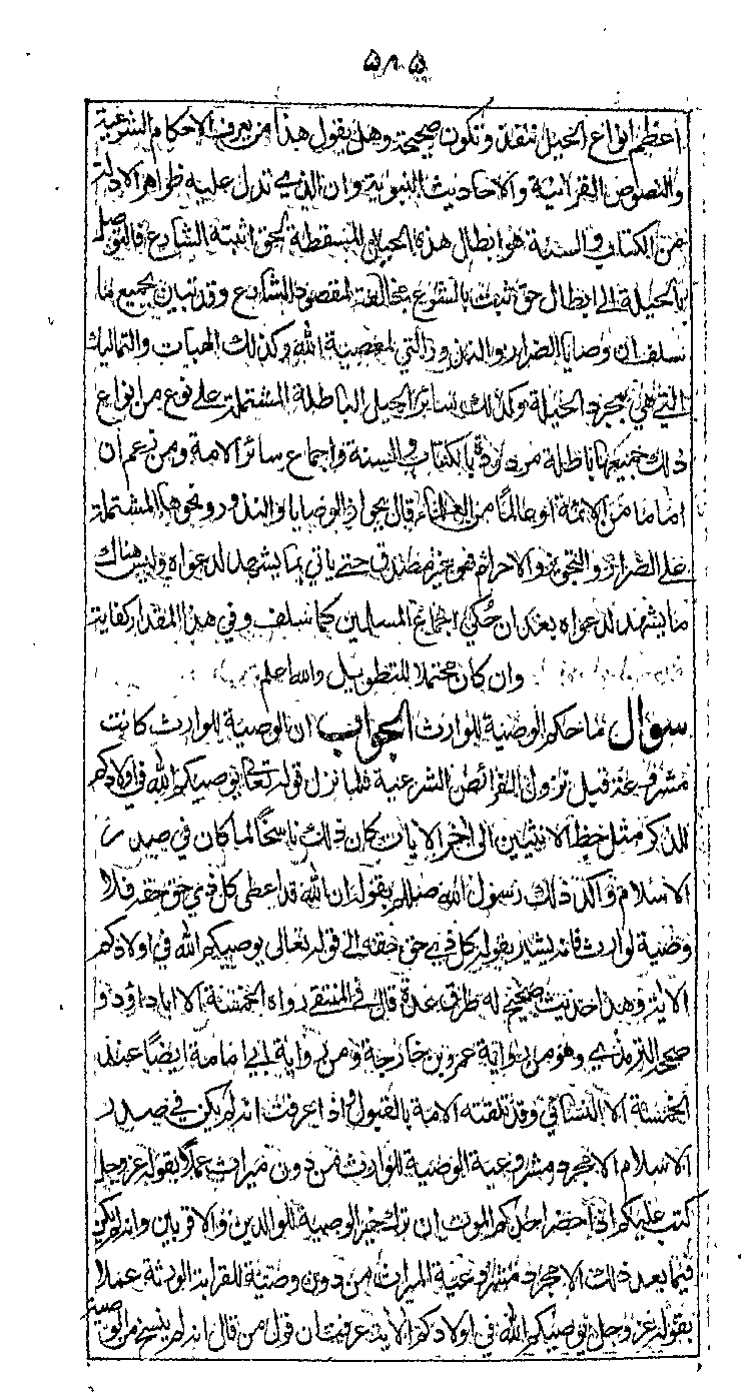 ۵۸۵
اعظم انواع الحيل تنفذ وتكون صحيحة وهل يقول هذا من يعرف الاحكام الشرعية
والنصوص القرانية والاحاديث النبوية وان الذي تدل عليه ظواهر الادلة
من الكتاب والسنة هو ابطال هذه الحيل المسقطة لحق اثبته الشارع فالتوصل
بالحيلة الى ابطال حق ثبت بالشرع مخالفة لمقصود الشارع وقد تبين بجميع ما
سلف ان وصايا الضرار والنذور التي لمعصية الله وكذلك الهبات والتمليكات
التي هي مجرد الحيلة وكذلك سائر الحيل الباطلة المشتملة على نوع من انواع
ذلك جميعها باطلة مردودة بالكتاب والسنة واجماع سائر الامة ومن زعم ان
اماما من الائمة او عالما من العلماء قال بجواز الوصايا والنذور ونحوها المشتملة
على الضرار والتحويز والاحرام فهو غير مصدق حتى ياتي بما يشهد لدعواه وليس هناك
ما يشهد لدعواه بعد ان حكي اجماع المسلمين كما سلف وفي هذا المقدار كفاية
وان كان محتملا للتطويل والله اعلم
سوال ما حكم الوصية للوارث الجواب ان الوصية للوارث كانت
مشروعة قبل نزول الفرائض الشرعية فلما نزل قوله تعالى يوصيكم الله في اولادكم
للذكر مثل حظ الانثيين الى اخر الايات كان ذلك ناسخا لما كان في صدر
الاسلام واكد ذلك رسول الله صللم بقوله ان الله قد اعطى كل ذي حق حقه فلا
وصية لوارث فانه يشير بقوله كل ذي حق حقه الى قوله تعالى يوصيكم الله في اولادكم
الاية وهذا حديث صحيح له طرق عدة قال في المنتقى رواه الخمسة الا ابا داود و
صححه الترمذي وهو من رواية عمرو بن خارجة ومن رواية ابي امامة ايضا عند
الخمسة الا النسائي وقد تلقته الامة بالقبول واذا عرفت انه لم يكن في صدر
الاسلام الا مجرد مشروعية الوصية للوارث من دون ميراث عملا بقوله عز وجل
كتب عليكم اذا حضر احدكم الموت ان ترك خيرا الوصية للوالدين والاقربين وانه لم يكن
فيما بعد ذلك الا مجرد مشروعية الميراث من دون وصية للقرابة الورثة عملا
بقوله عز وجل يوصيكم الله في اولادكم الاية عرفت ان قول من قال انه لم ينسخ من الوصية